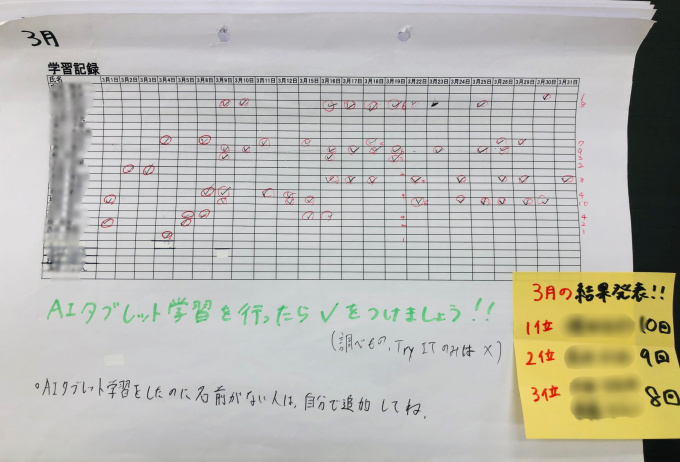 3月
学習記録
氏名 3月1日 3月2日 3月3日 3月4日 3月5日 3月8日 3月9日 3月10日 3月11日 3月12日 3月15日 3月16日 3月17日 3月18日 3月19日 3月22日 3月23日 3月24日 3月25日 3月26日 3月29日 3月30日 3月31日
AIタブレット学習を行ったら✓をつけましょう!!
(調べもの、Try ITのみは×)
。AIタブレット学習をしたのに名前がない人は、自分で追加してね。
3月の結果発表!!
1位 10回
2位 9回
3位 8回